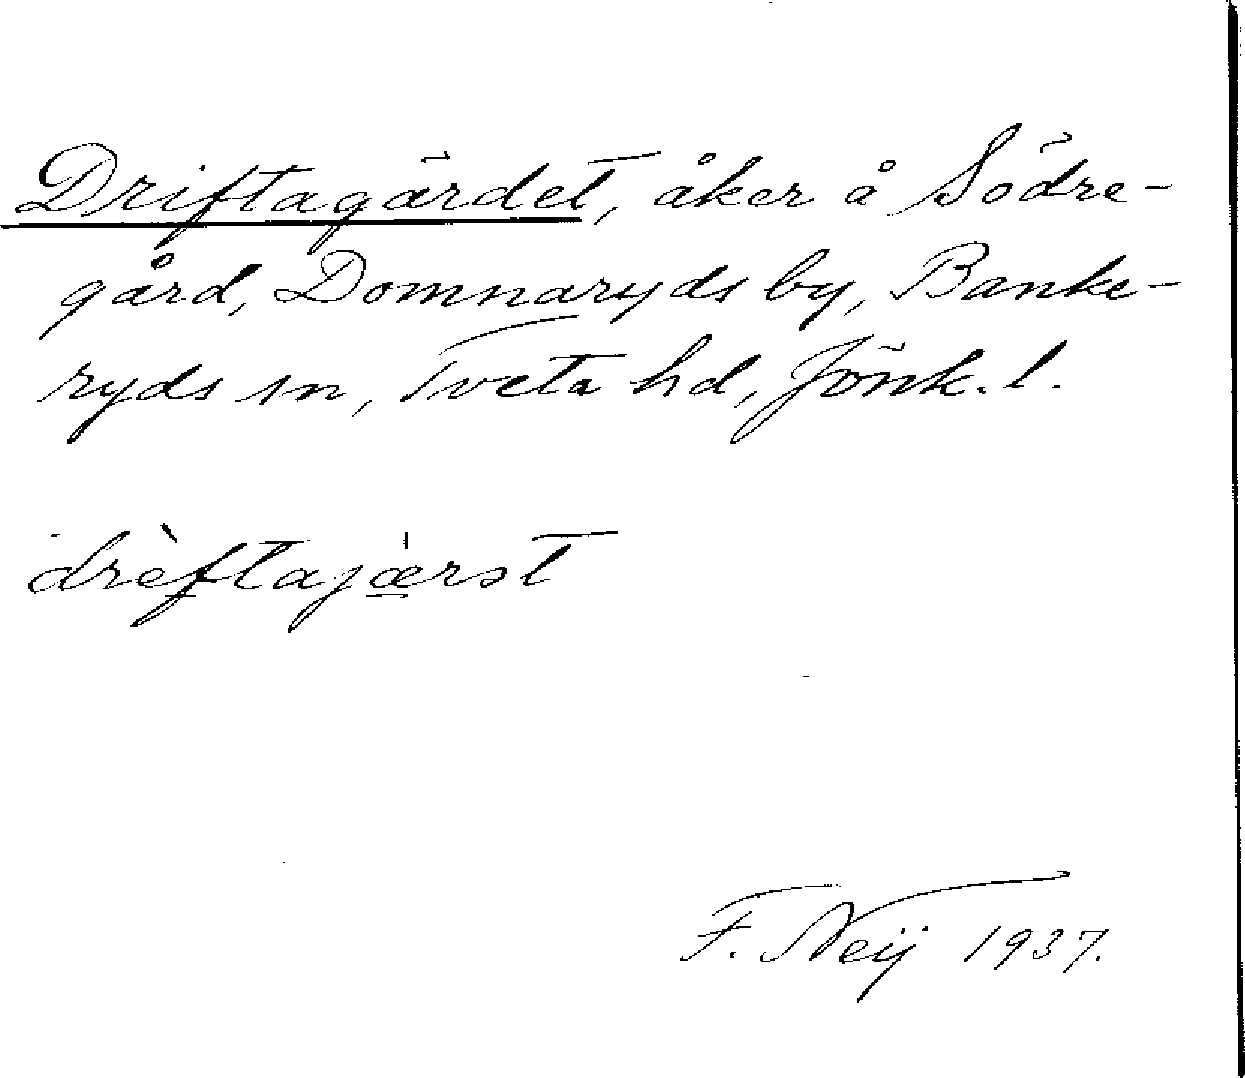 Driftagärdet, åker å Södre-
gård, Domnaryds by, Banke-
ryds sn, Tveta hd, Jönk. l.
drèftajæ̍rst
F. Neij 1937.